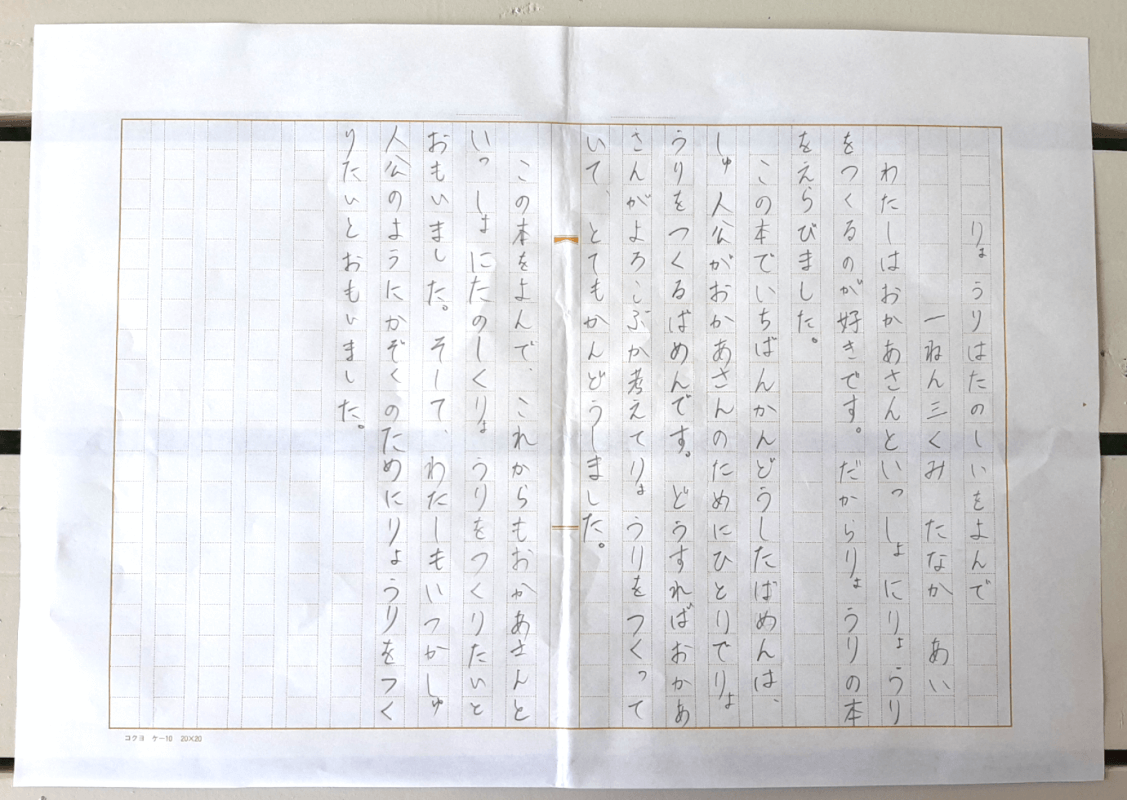 りょうりはたのしいをよんで
一ねん三くみ たなか あい
わたしはおかあさんといっしょにりょうり
をつくるのが好きです。だからりょうりの本
をえらびました。
この本でいちばんかんどうしたばめんは、
しゅ人公がおかあさんのためにひとりでりょ
うりをつくるばめんです。どうすればおかあ
さんがよろこぶか考えてりょうりをつくって
いて、とてもかんどうしました。
この本をよんで、これからもおかあさんと
いっしょにたのしくりょうりをつくりたいと
おもいました。そして、わたしもいつかしゅ
人公のようにかぞくのためにりょうりをつく
りたいとおもいました。
コクヨ ケー10 20×20